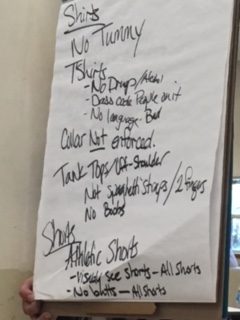 Shirts
No Tummy
TShirts
- No Drugs/
- Dress code People on it
- No language. Bad
Collar Not enforced.
Tank Tops/Off-Shoulder
Not spaghetti straps/2 fingers
No Boobs
Shorts
Athletic Shorts
- Visually see shorts - All shorts
- No butts - All shorts